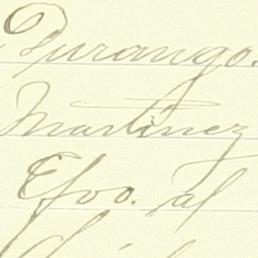 Durango.
Martinez
Efvo. al